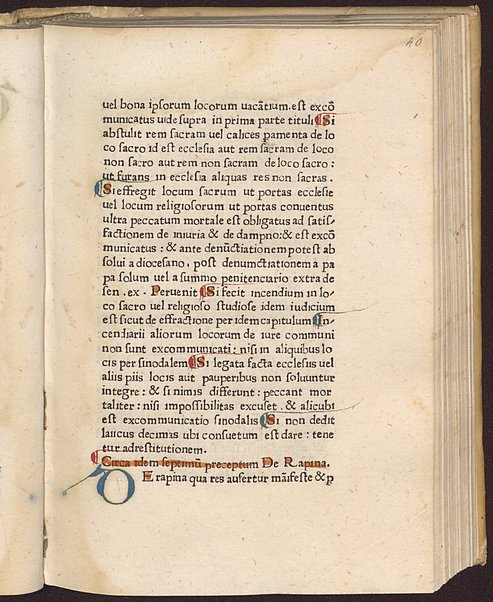 40
uel bona ipsorum locorum uacātium.est excō
municatus uide supra in prima parte tituli Si
abstulit rem sacram uel calices pamenta de lo
co sacro id est ecclesia aut rem sacram de loco
non sacro aut rem non sacram de loco sacro:
ut furans in ecclesia aliquas res non sacras.
Si effregit locum sacrum ut portas ecclesie
uel locum religiosorum ut portas conuentus
ultra peccatum mortale est obligatus ad satis-
factionem de iniuria & de dampno:& est excō
municatus: & ante denūctiationem potest ab
solui a diocesano. post denunctiationem a pa
pa solum uel a summo penitenciario extra de
sen. ex. Peruenit Si fecit incendium in lo-
co sacro uel religioso studiose idem iudicium
est sicut de effractione per idem capitulum In
cendiarii aliorum locorum de iure communi
non sunt excommunicati: nisi in aliquibus lo
cis per sinodalem Si legata facta ecclesiis uel
aliis piis locis aut pauperibus non soluuntur
integre: & si nimis differunt: peccant mor
taliter: nisi impossibilitas excuset. & alicubi
est excommunicatio sinodalis Si non dedit
laicus decimas ubi consuetum est dare: tene
tur ad restitutionem.
Circa idem septimū preceptum De Rapina.
DE rapina qua res aufertur māifeste & p